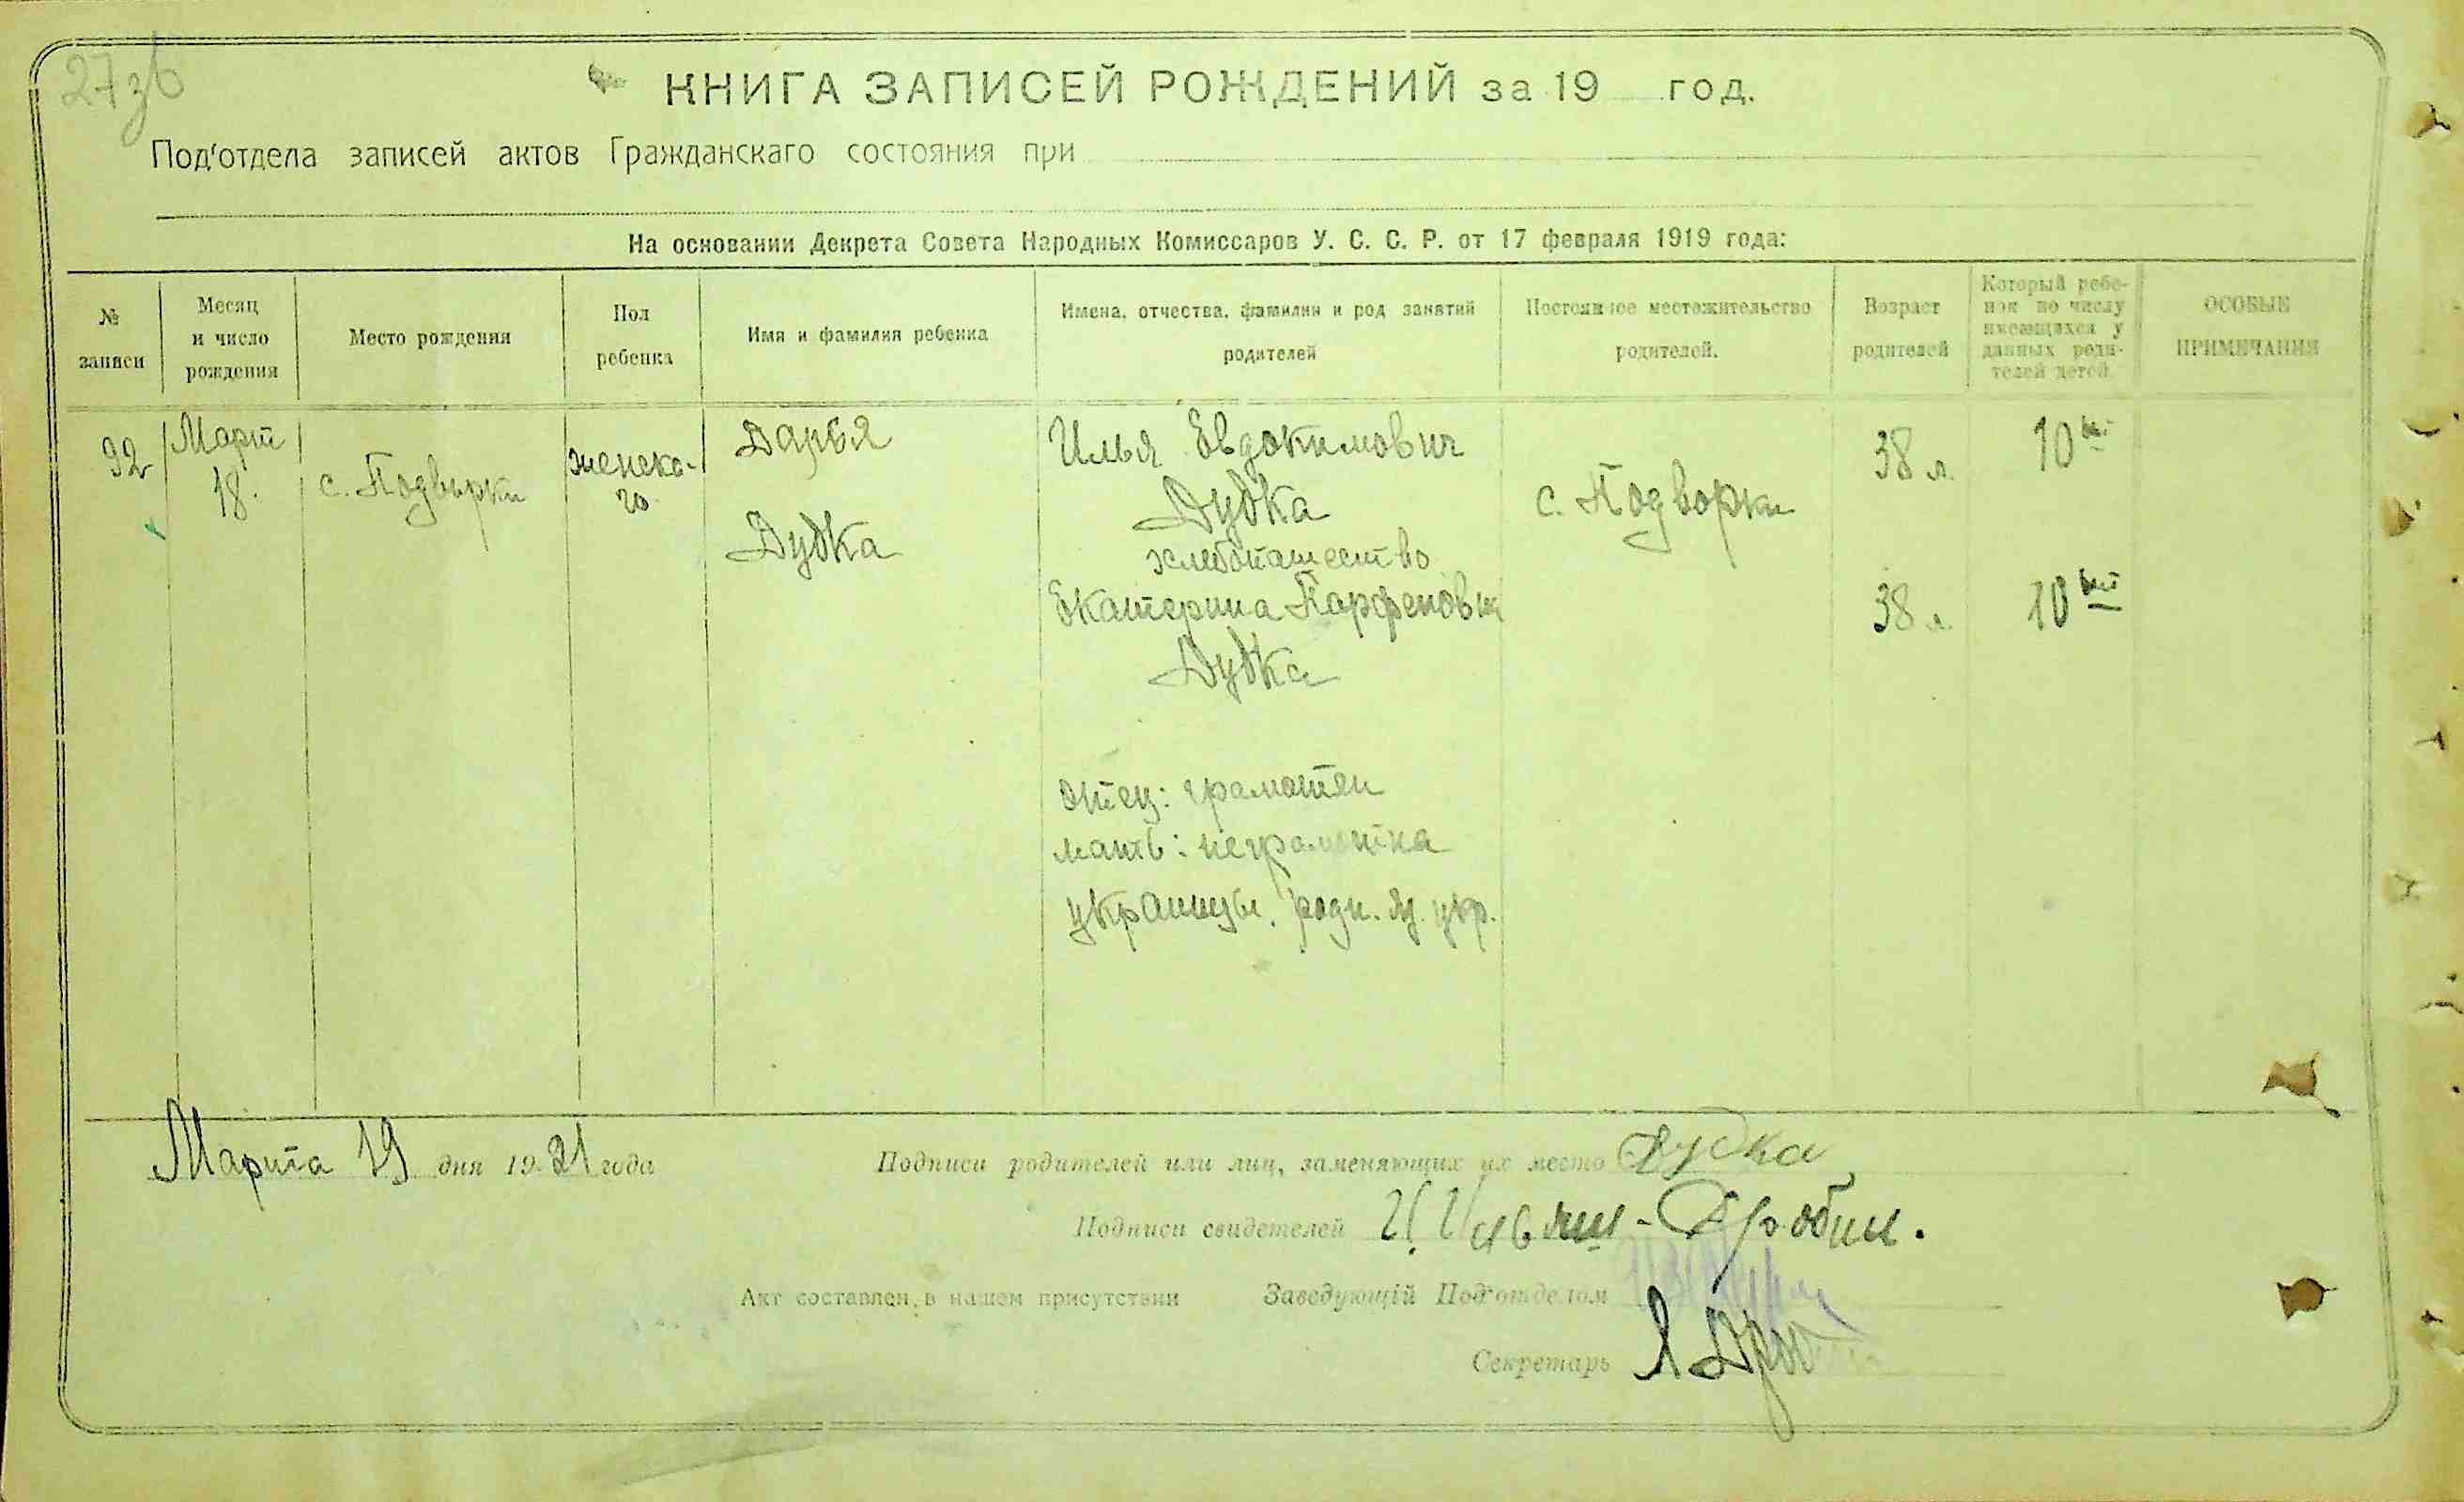 27зв
КНИГА ЗАПИСЕЙ РОЖДЕНИЙ за 19 год.
Под'отдела записей актов Гражданскаго состояния при
На основании Декрета Совета Народных Комиссаров У. С. С. Р. от 17 февраля 1919 года:
№ записи
Месяц и число рождения
Место рождения
Пол ребенка
Имя и фамилия ребенка
Имена, отчества, фамилии и род занятий родителей
Постоянное местожительство родителей.
Возраст родителей
Который ребенок по числу имеющихся у данных родителей детей
ОСОБЫЕ ПРИМЕЧАНИЯ
92
Март
18.
с. Подворки
женско-
го
Дарья
Дудка
Илья Евдокимович
Дудка
хлебопашество
Екатерина Парфеновна
Дудка
с. Подворки
38 л.
38 л.
10ый
10ый
отец: грамотен
мать: неграмотна
украинцы, родн. яз. укр.
Марта 19 дня 1921 года
Подписи родителей или лиц, заменяющих их место Дудка
Подписи свидетелей
Акт составлен, в нашем присутствии Заведующiй Под'отделом
Секретарь